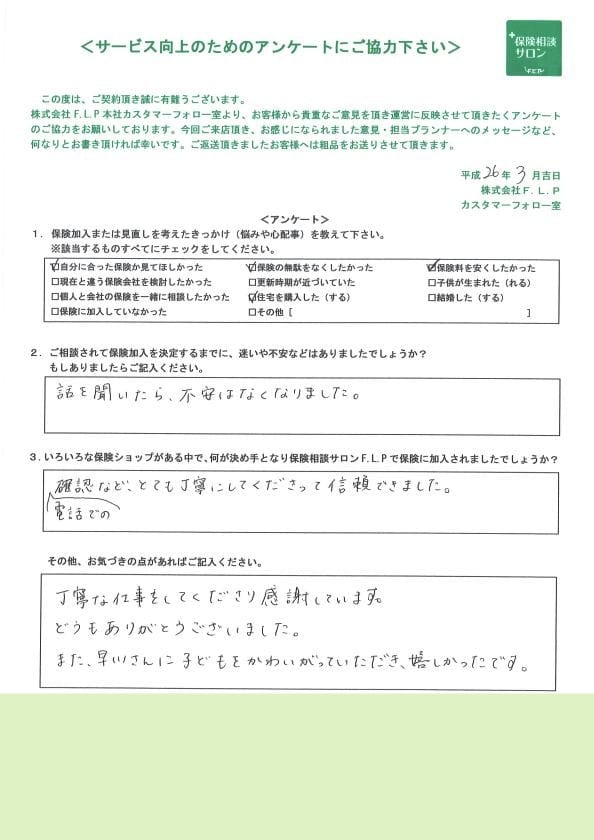 ＜サービス向上のためのアンケートにご協力下さい＞
+保険相談
サロン
F.L.P
この度は、ご契約頂き誠に有難うございます。
株式会社F.L.P本社カスタマーフォロー室より、お客様から貴重なご意見を頂き運営に反映させて頂きたくアンケート
のご協力をお願いしております。今回ご来店頂き、お感じになられました意見・担当プランナーへのメッセージなど、
何なりとお書き頂ければ幸いです。ご返送頂きましたお客様へは粗品をお送りさせて頂きます。
平成26年3月吉日
株式会社F.L.P
カスタマーフォロー室
＜アンケート＞
1．保険加入または見直しを考えたきっかけ（悩みや心配事）を教えて下さい。
※該当するものすべてにチェックをしてください。
☑自分に合った保険か見てほしかった ☑保険の無駄をなくしたかった ☑保険料を安くしたかった
□現在と違う保険会社を検討したかった □更新時期が近づいていた □子供が生まれた（れる）
□個人と会社の保険を一緒に相談したかった ☑住宅を購入した（する） □結婚した（する）
□保険に加入していなかった □その他［ ］
2．ご相談されて保険加入を決定するまでに、迷いや不安などはありましたでしょうか？
もしありましたらご記入ください。
話を聞いたら、不安はなくなりました。
3．いろいろな保険ショップがある中で、何が決め手となり保険相談サロンF.L.Pで保険に加入されましたでしょうか？
確認など、とても丁寧にしてくださって信頼できました。
電話での
その他、お気づきの点があればご記入ください。
丁寧な仕事をしてくださり感謝しています。
どうもありがとうございました。
また、早川さんに子どもをかわいがっていただき、嬉しかったです。